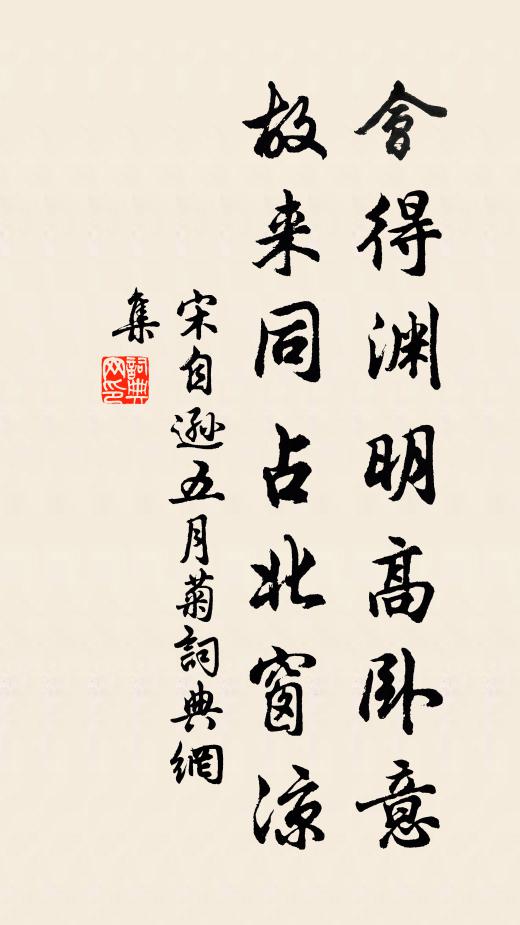 會得渊明高卧意
故来同占北窗凉
宋自遜五月菊詞典網
集
詞典网印